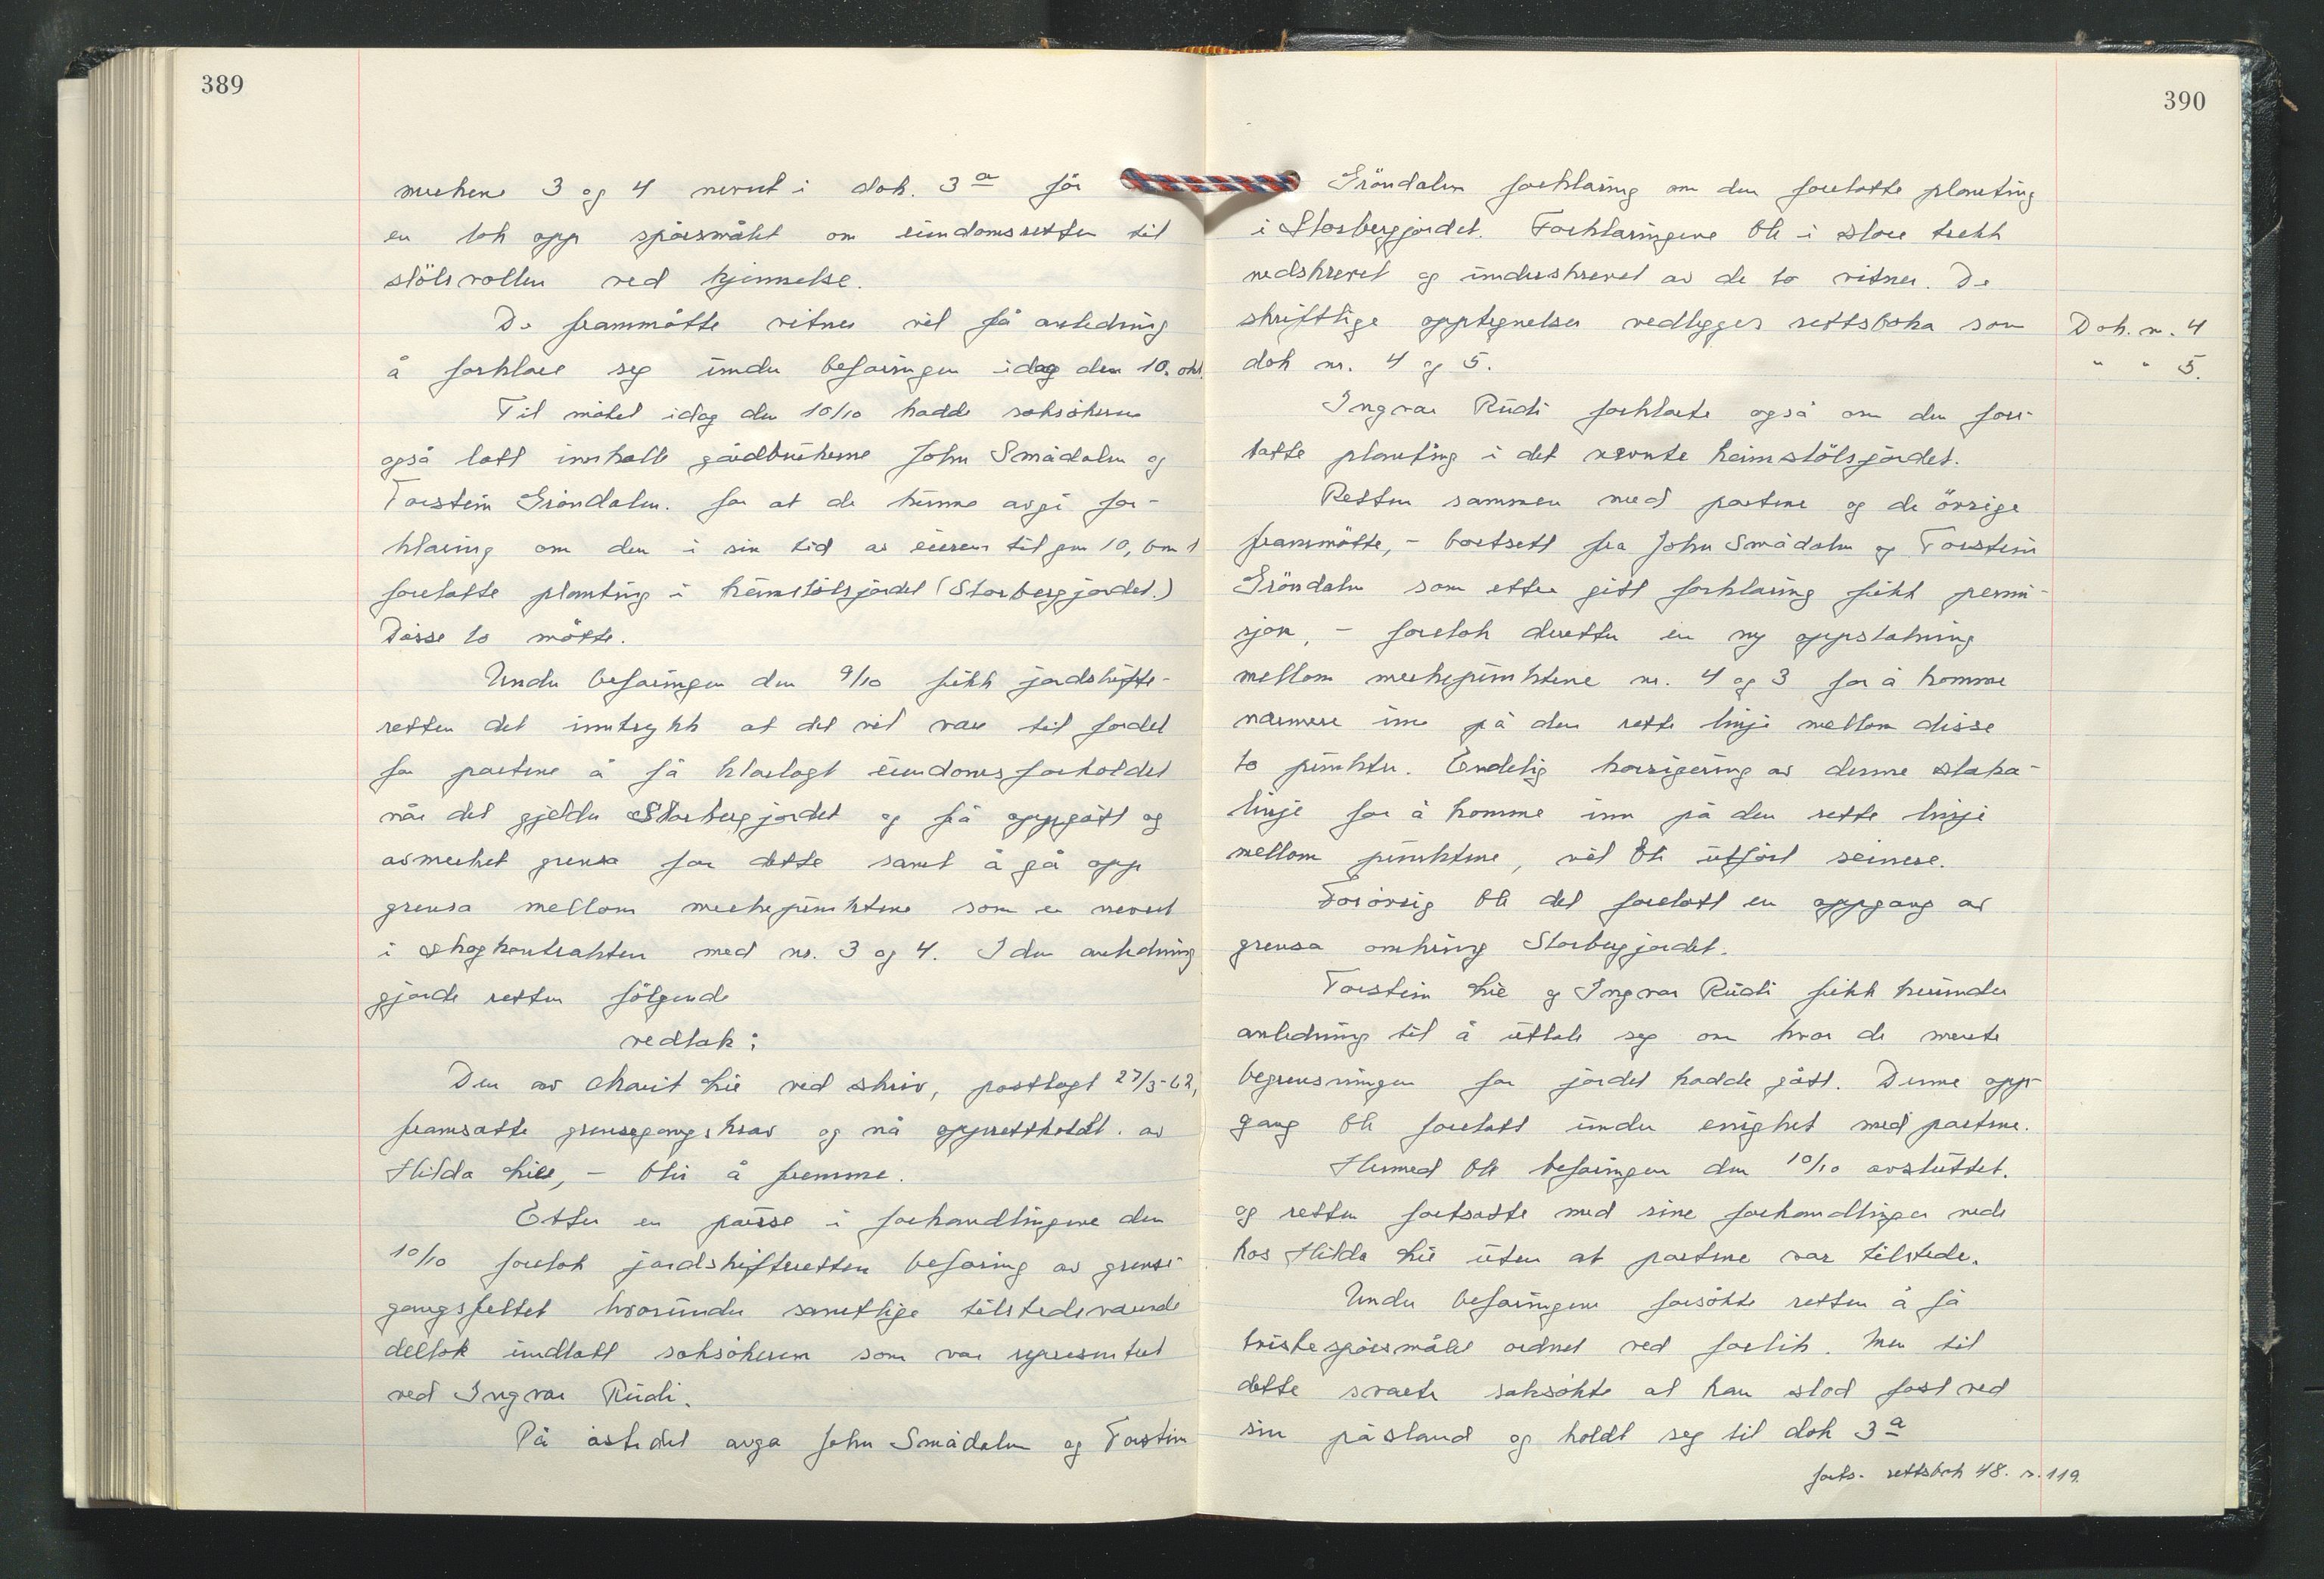 389
merkene 3 og 4 nevnt i dok. 3a får
en tok opp spörsmålet om eiendomsretten til
stölsvollen ved kjennelse.
De frammötte vitner vil få anledning
å forklare seg under befaringen idag den 10. okt.
Til mötet idag den 10/10 hadde saksökeren
også latt innkalle gårdbrukerne John Smådalen og
Torstein Gröndalen. for at de kunne avgi for-
klaring om den i sin tid av eieren til gnr 10, bnr 1
foretatte planting i heimstölsjordet (Storbergjordet.)
Disse to mötte.
Under befaringen den 9/10 fikk jordskifte-
retten det inntrykk at det vil være til fordel
for partene å få klarlagt eiendomsforholdet
når det gjelder Storbergjordet og få oppgått og
avmerket grensa for dette samt å gå opp
grensa mellom merkepunktene som er nevnt
i skogkontrakten med nr. 3 og 4. I den anledning
gjorde retten fölgende
vedtak:
Den av Marit Lie ved skriv, postlagt 27/3-62,
framsatte grensegangskrav og nå opprettholdt av
Hilda Lie, - blir å fremme.
Etter en pause i forhandlingene den
10/10 foretok jordskifteretten befaring av grense-
gangsfeltet hvorunder samtlige tilstedeværende
deltok undtatt saksökeren som var representert
ved Ingvar Rudi.
På åstedet avga John Smådalen og Torstein
390
Gröndalen forklaring om den foretatte planting
i Storbergjordet. Forklaringene ble i store trekk
nedskrevet og underskrevet av de to vitner. De
skriftlige opptegnelser vedlegges rettsboka som
Dok. nr. 4
dok nr. 4 og 5.
" " 5.
Ingvar Rudi forklarte også om den fore-
tatte planting i det nevnte heimstölsjordet.
Retten sammen med partene og de övrige
frammötte, - bortsett fra John Smådalen og Torstein
Gröndalen som etter gitt forklaring fikk permi-
sjon, - foretok deretter en ny oppstakning
mellom merkepunktene nr. 4 og 3 for å komme
nærmere inn på den rette linje mellom disse
to punkter. Endelig korrigering av denne staka-
linje for å komme inn på den rette linje
mellom punktene, vil bli utfört seinere.
Forövrig ble det foretatt en oppgang av
grensa omkring Storbergjordet.
Torstein Lie og Ingvar Rudi fikk herunder
anledning til å uttale seg om hvor de mente
begrensningen for jordet hadde gått. Denne opp-
gang ble foretatt under enighet med partene.
Hermed ble befaringen den 10/10 avsluttet.
og retten fortsatte med sine forhandlinger nede
hos Hilda Lie uten at partene var tilstede.
Under befaringene forsökte retten å få
tvistespörsmålet ordnet ved forlik. Men til
dette svarte saksökte at han stod fast ved
sin påstand og holdt seg til dok 3a
forts. rettsbok 48. s. 119.